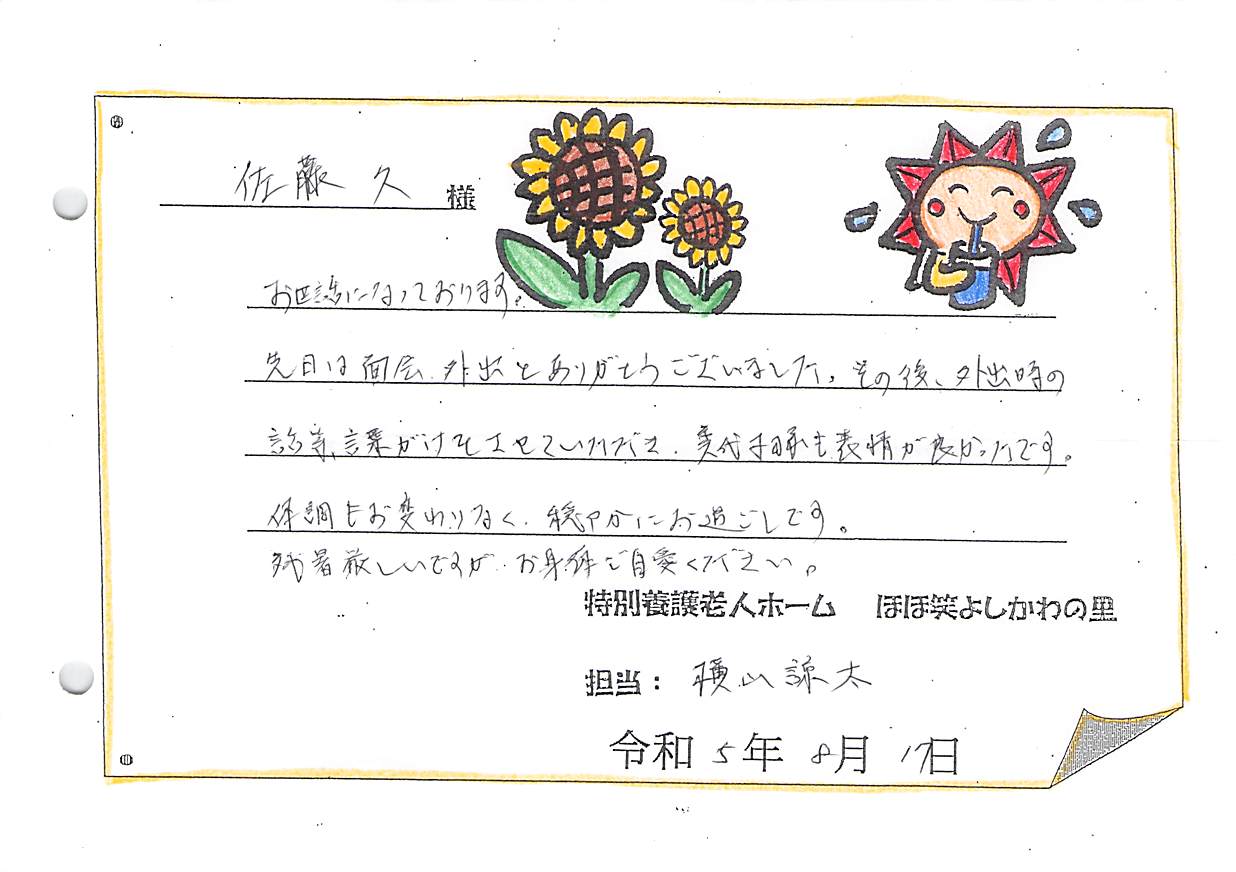 佐藤 久 様
お世話になっております。
先日は面会、外出とありがとうございました。その後、外出時の
話等、言葉がけをさせていただき、美代子様も表情が良かったです。
体調もお変わりなく、穏やかにお過ごしです。
残暑厳しいですが、お身体ご自愛ください。
特別養護老人ホーム ほほ笑よしかわの里
担当： 横山諒太
令和5年8月17日